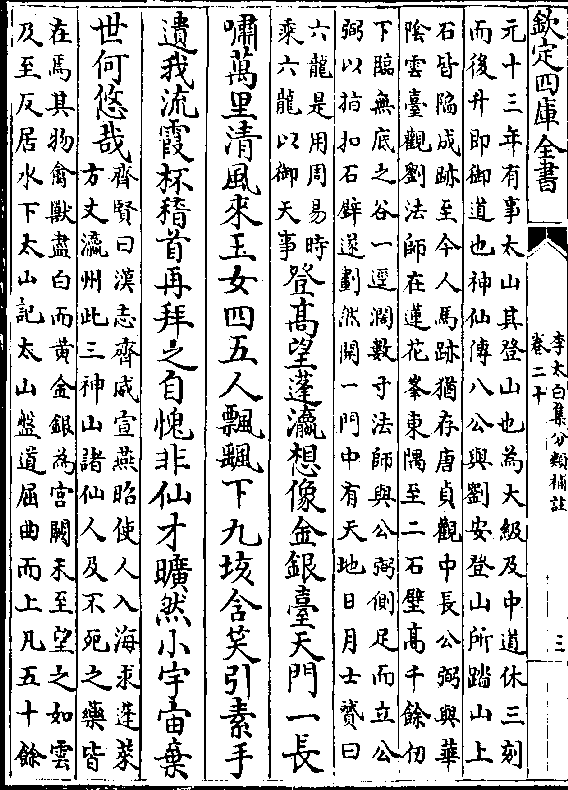 欽定四庫全書
李太白集分類補註
卷二十
三
元十三年有事太山其登山也為大級及中道休三刻
而後升即御道也神仙傳八公與劉安登山所踏山上
石皆陷成跡至今人馬跡猶存唐貞觀中長公弼與華
陰雲臺觀劉法師在蓮花峯東隅至二石壁高千餘仞
下臨無底之谷一逕濶數寸法師與公弼側足而立公
弼以指扣石壁遂劃然開一門中有天地日月士贇曰
六龍是用周易時
乘六龍以御天事
登髙望蓬瀛想像金銀臺天門一長
嘯萬里清風來玉女四五人飄飖下九垓含笑引素手
遺我流霞杯稽首再拜之自愧非仙才曠然小宇宙棄
世何悠哉
齊賢曰漢志齊威宣燕昭使人入海求蓬萊
方丈瀛州此三神山諸仙人及不死之藥皆
在焉其物禽獸盡白而黃金銀為宮闕未至望之如雲
及至反居水下太山記太山盤道屈曲而上凡五十餘